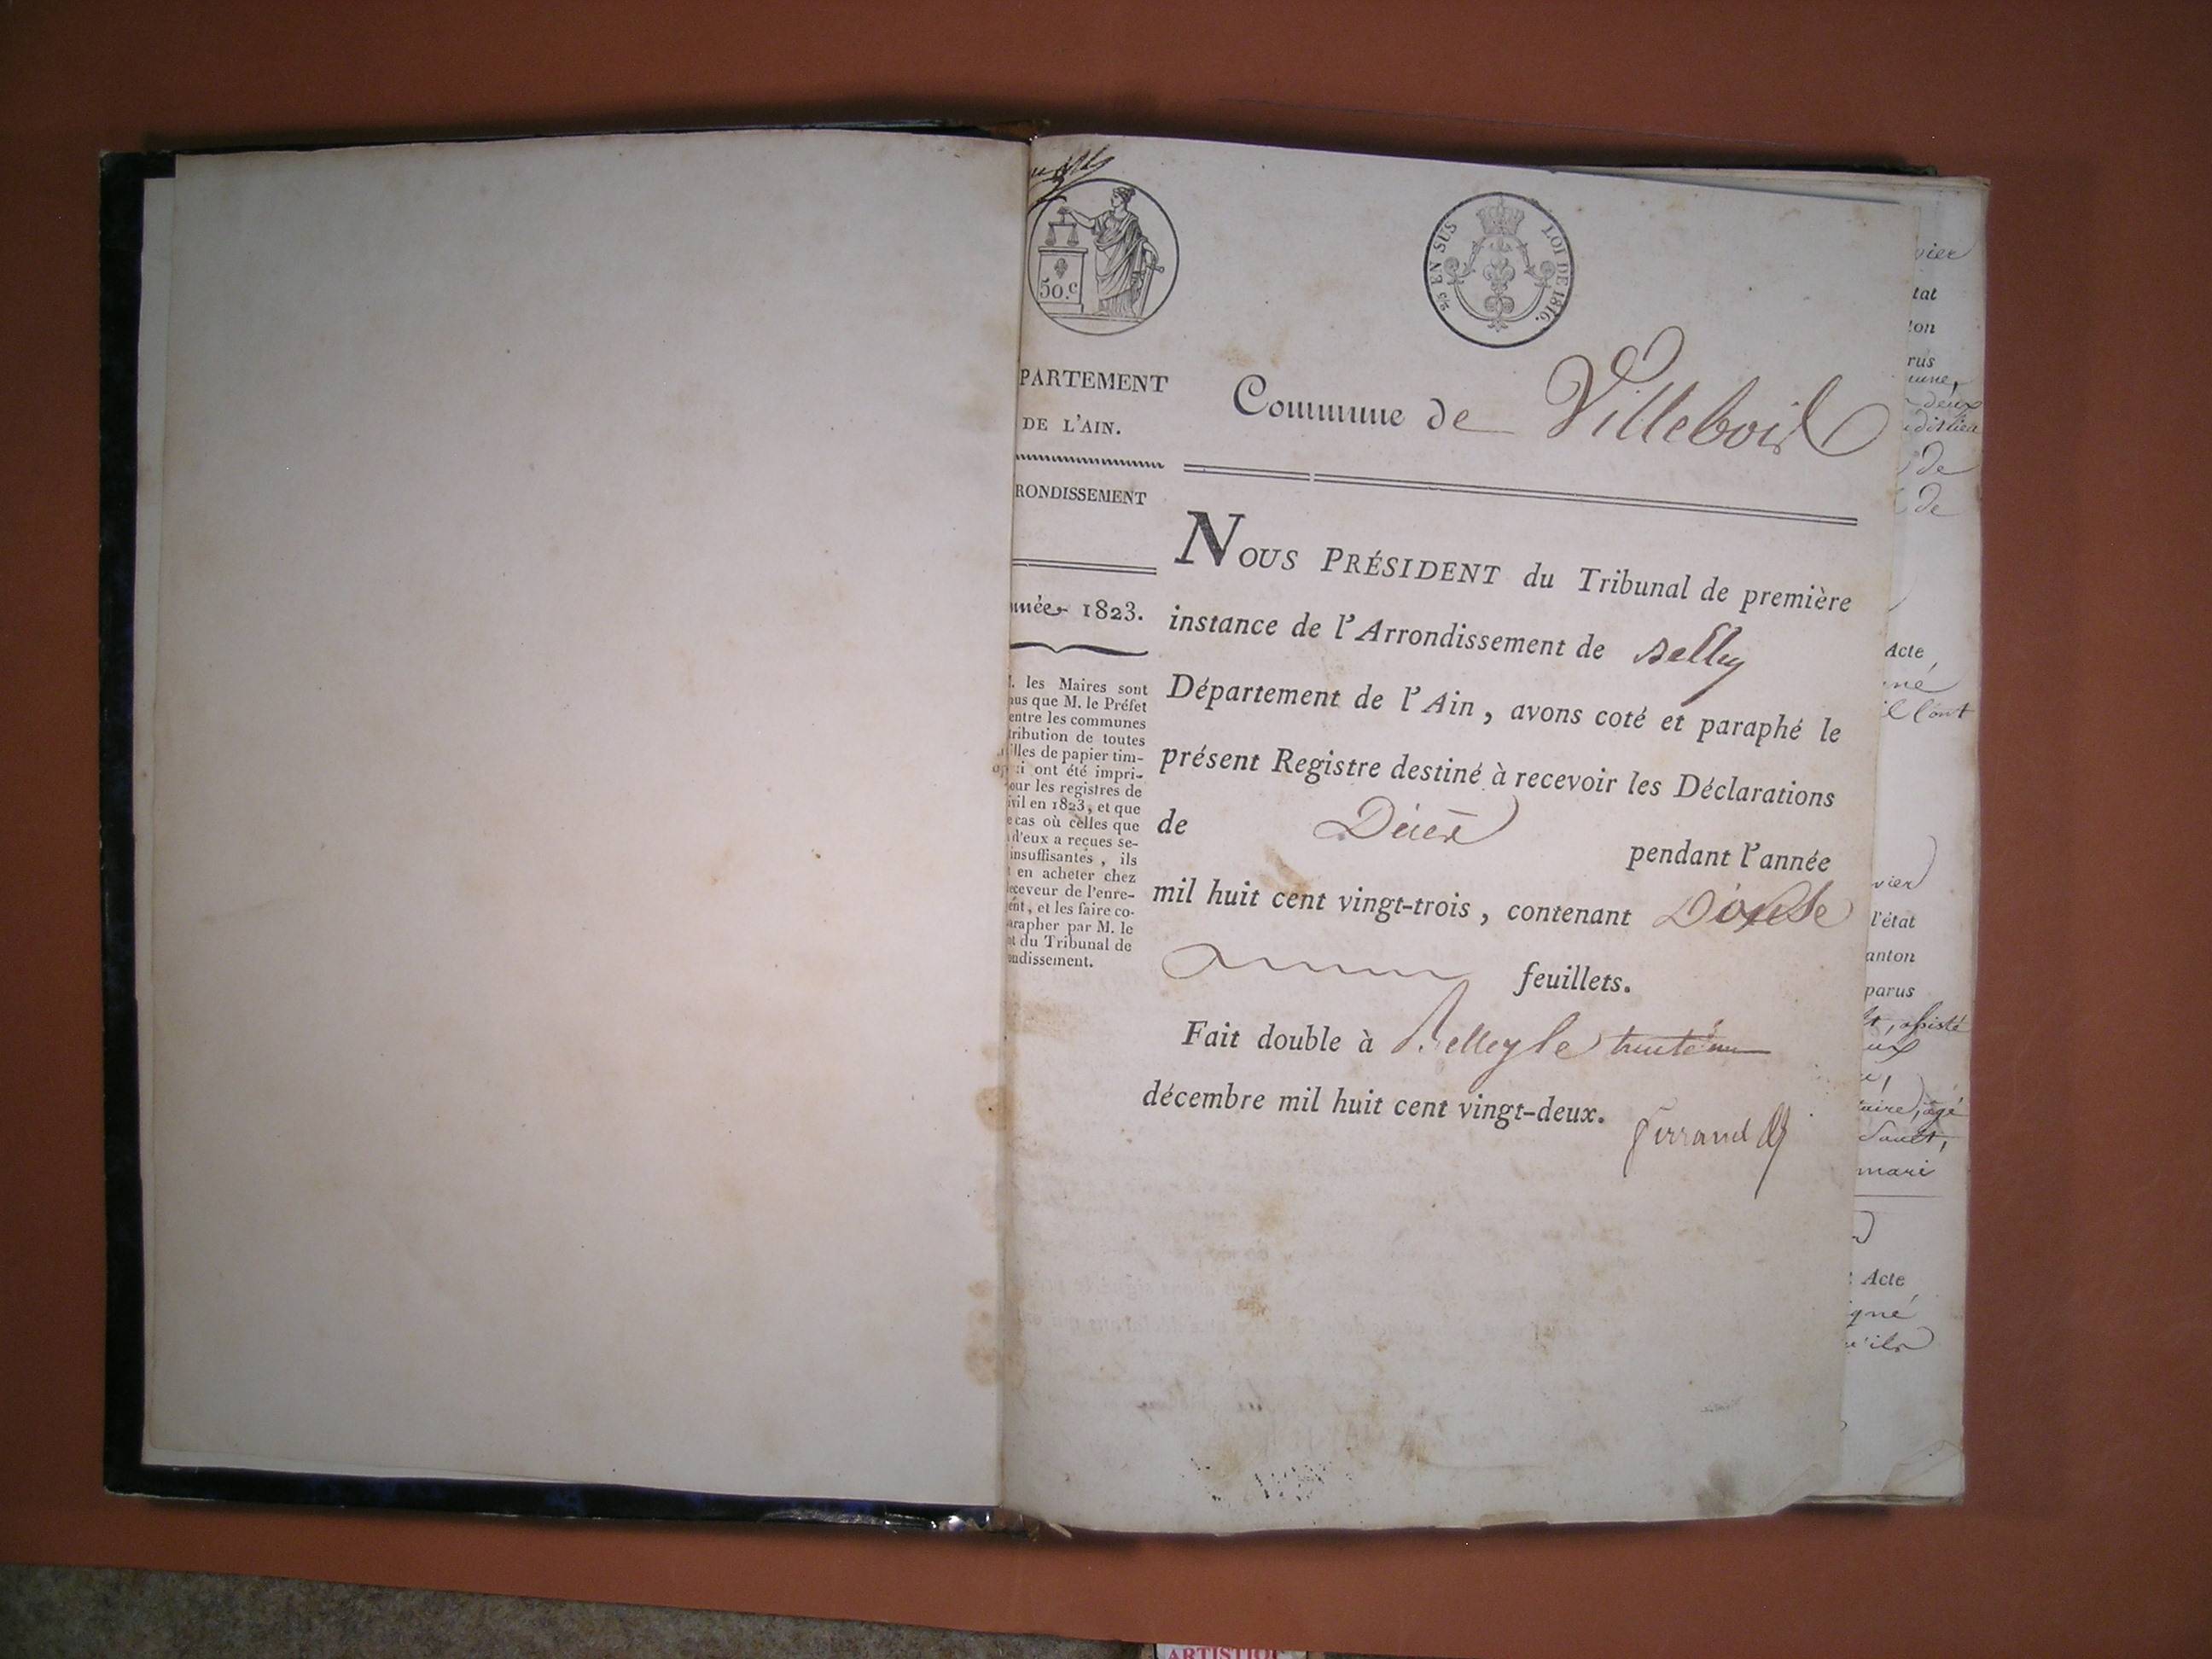 50.c
25c EN SUS LOI DE 1816.
PARTEMENT
DE L'AIN.
RONDISSEMENT
nnée 1823.
. les Maires sont
nus que M. le Préfet
entre les communes
tribution de toutes
illes de papier tim-
i ont été impri-
our les registres de
ivil en 1823, et que
e cas où celles que
d'eux a reçues se-
insuffisantes, ils
en acheter chez
eceveur de l'enre-
ent, et les faire co-
arapher par M. le
nt du Tribunal de
ondissement.
Commune de Villebois
NOUS PRÉSIDENT du Tribunal de première
instance de l'Arrondissement de Belley
Département de l'Ain, avons coté et paraphé le
présent Registre destiné à recevoir les Déclarations
de Décès pendant l'année
mil huit cent vingt-trois, contenant Douse
feuillets.
Fait double à Belley le trente un
décembre mil huit cent vingt-deux.
vier
tat
ton
rus
deux
de
de
Acte
né
l'ont
vier
l'état
anton
parus
assisté
aire, âgé
Sault,
mari
Acte
igné
u'ils
ARTISTIQ